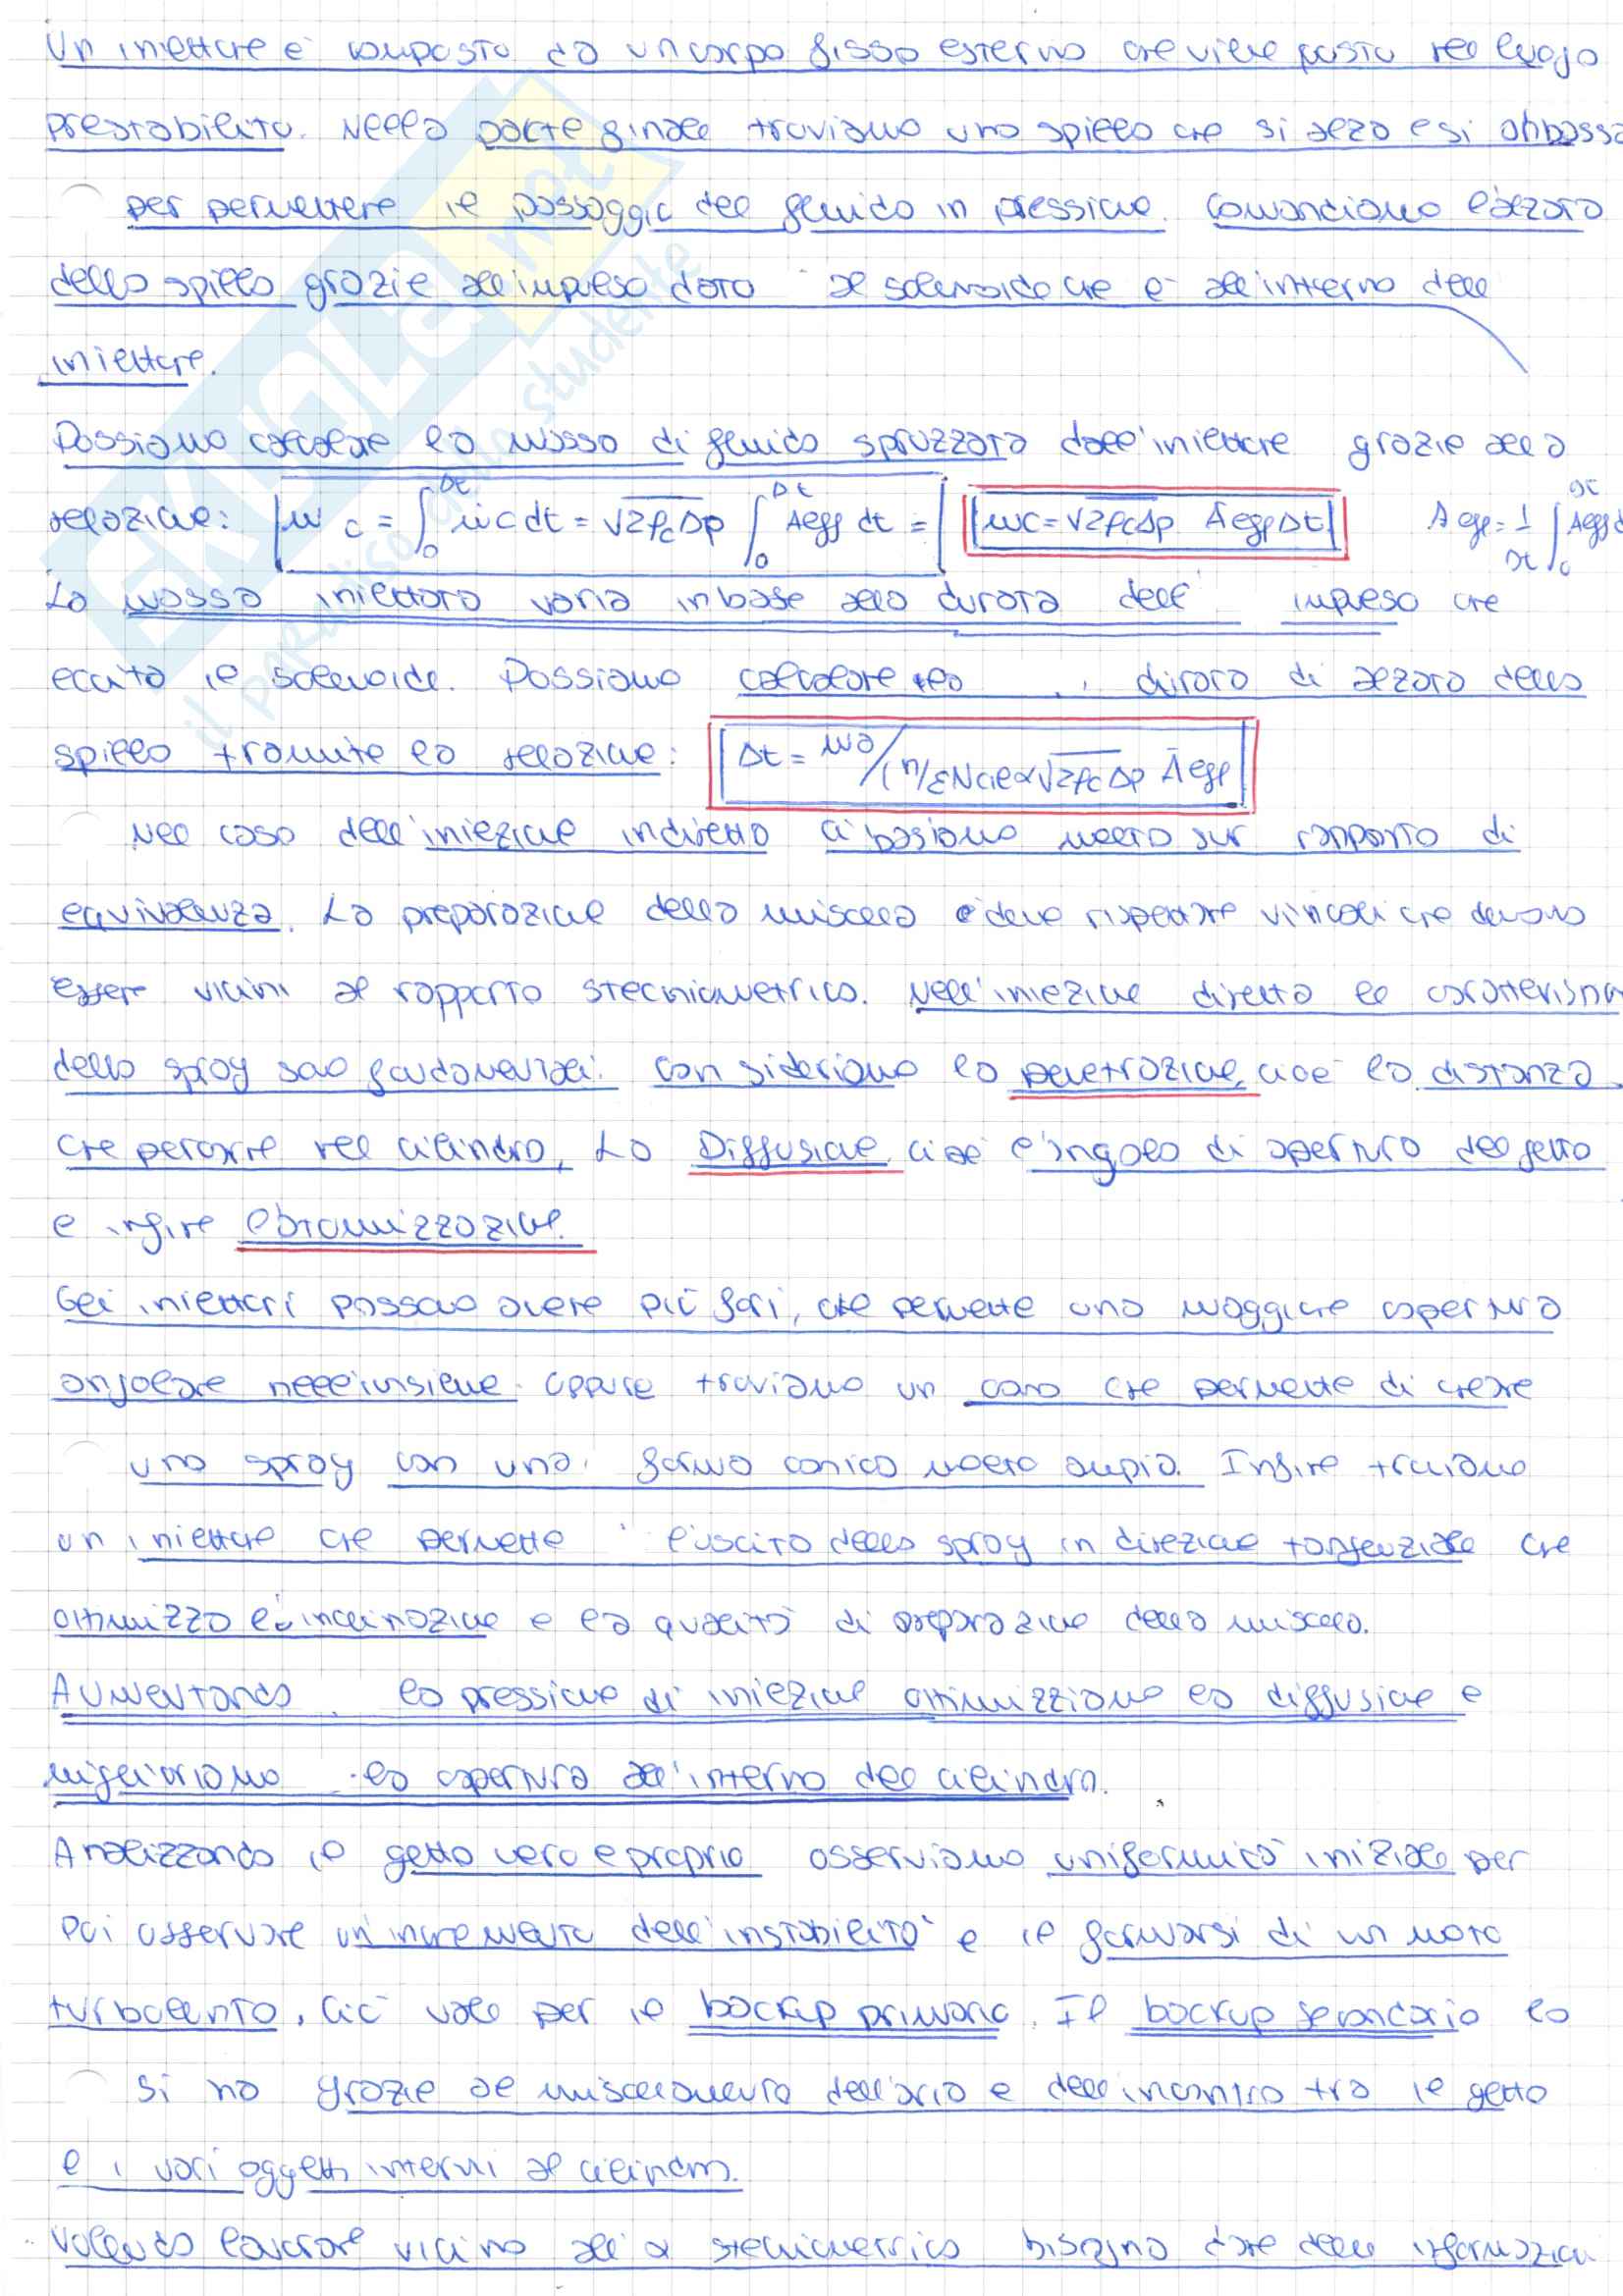 Un iniettore è composto da un corpo fisso esterno che viene posto nel luogo
prestabilito. Nella parte finale troviamo uno spillo che si alza e si abbassa
per permettere il passaggio del fluido in pressione. Comandiamo l'alzata
dello spillo grazie all'impulso dato al solenoide che è all'interno dell
iniettore.
Possiamo calcolare la massa di fluido spruzzata dall'iniettore grazie alla
relazione: m c = ∫₀^Δt ṁc dt = √2ρcΔp ∫₀^Δt Aeff dt = mc = √2ρcΔp Āeff Δt Āeff = 1/Δt ∫₀^Δt Aeff d
La massa iniettata varia in base alla durata dell' impulso che
eccita il solenoide. Possiamo calcolare la durata di alzata dello
spillo tramite la relazione: Δt = ma/(n/εNcilα√2ρcΔp Āeff
Nel caso dell'iniezione indiretta ci basiamo molto sur rapporto di
equivalenza. La preparazione della miscela deve rispettare vincoli che devono
essere vicini al rapporto stechiometrico. Nell'iniezione diretta le caratteristich
dello spray sono fondamentali: consideriamo la penetrazione, cioè la distanza
che percorre nel cilindro, La Diffusione, cioè l'angolo di apertura del getto
e infine l'atomizzazione.
Gli iniettori possono avere più fori, che permette una maggiore copertura
angolare nell'insieme. Oppure troviamo un cono che permette di creare
uno spray con una forma conica molto ampia. Infine troviamo
un iniettore che permette l'uscita dello spray in direzione tangenziale che
ottimizza l'inclinazione e la qualità di preparazione della miscela.
Aumentando la pressione di iniezione ottimizziamo la diffusione e
miglioriamo la copertura all'interno del cilindro.
Analizzando il getto vero e proprio osserviamo uniformità iniziale per
poi osservare un incremento dell'instabilità e il formarsi di un moto
turbolento, ciò vale per il backup primario. Il backup secondario lo
si ha grazie al miscelamento dell'aria e dell'incontro tra il getto
e i vari oggetti interni al cilindro.
Volendo lavorare vicino all'α stechiometrico bisogna dare delle informazioni